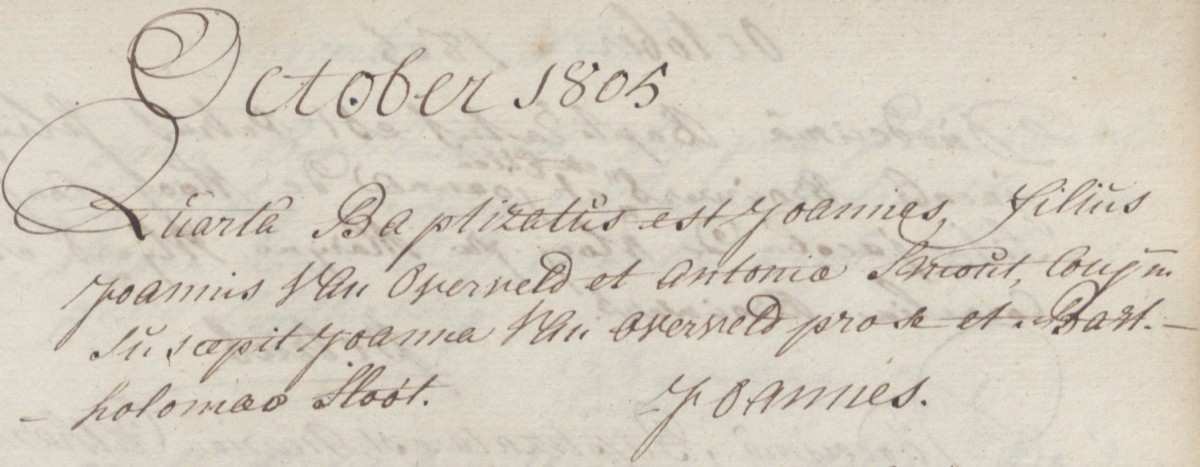 October 1805
Quarta Baptizatus est Joannes filius
Joannis Van Overveld et Antoniæ Conjm.
Suscepit Joanna Van Overveld pro se et Bart-
-holomæo Sloot. Joannes.